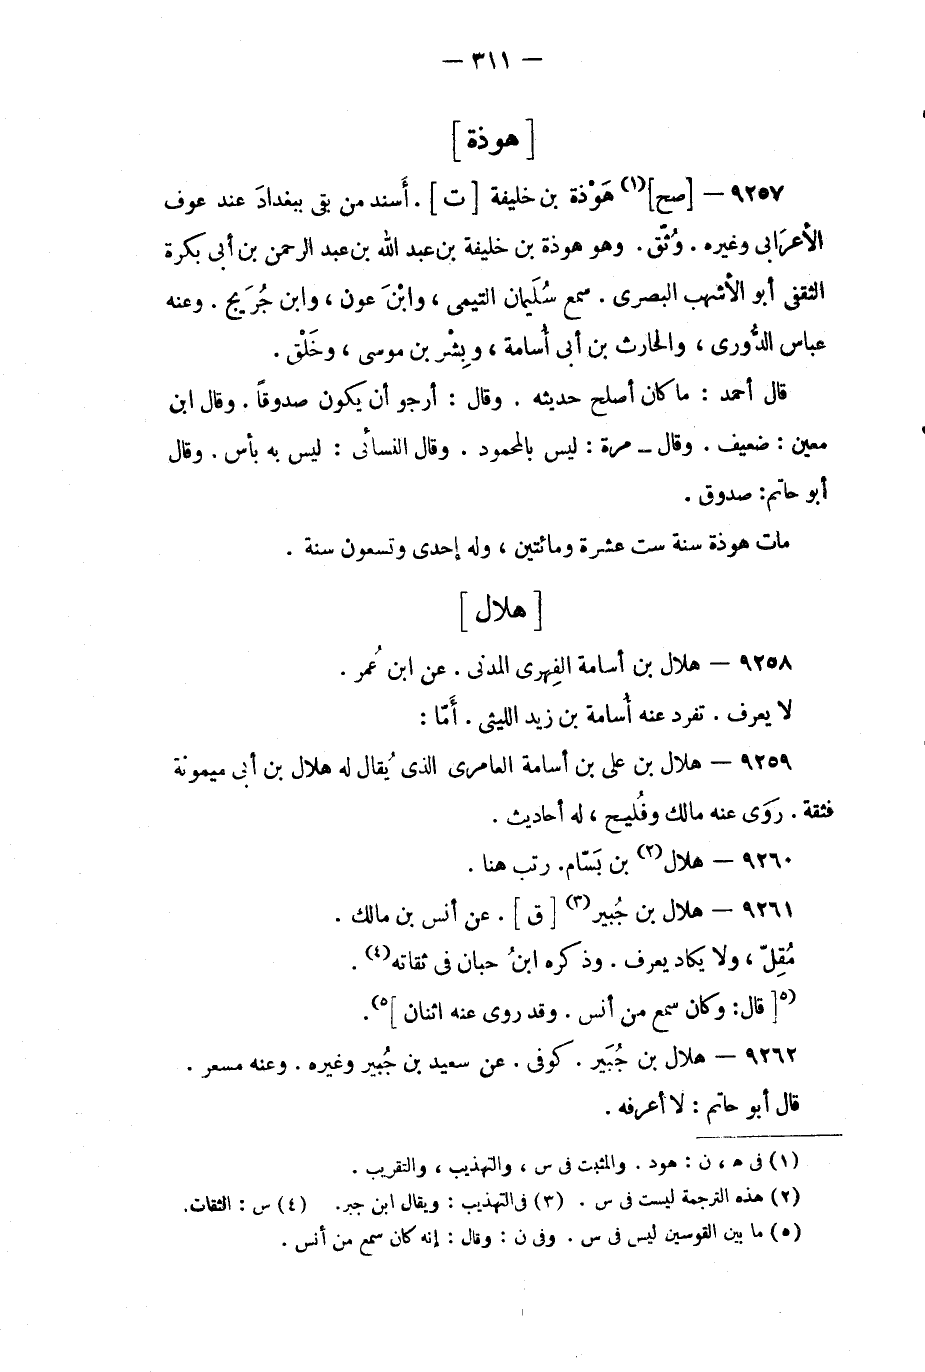 — ٣١١ —
[ هوذة ]
٩٢٥٧ — [صح](١) هَوْذة بن خليفة [ ت ] . أَسند من بقى ببغدادَ عند عوف
الأعرَابى وغيره . وُثّق . وهو هوذة بن خليفة بن عبد الله بن عبد الرحمن بن أبى بكرة
الثقفى أبو الأشهب البصرى . سمع سُلَيمان التيمى ، وابْنَ عون ، وابن جُرَيج . وعنه
عباس الدُّورى ، والحارث بن أبى أُسامة ، وبِشْر بن موسى ، وخَلْق .
قال أحمد : ما كان أصلح حديثه . وقال : أرجو أن يكون صدوقاً . وقال ابن
معين : ضعيف . وقال – مرة : ليس بالمحمود . وقال النسائى : ليس به بأس . وقال
أبو حاتم : صدوق .
مات هوذة سنة ست عشرة ومائتين ، وله إحدى وتسعون سنة .
[ هلال ]
٩٢٥٨ — هلال بن أسامة الفِهرى المدنى . عن ابن عُمر .
لا يعرف . تفرد عنه أُسامة بن زيد الليثى . أَمّا :
٩٢٥٩ — هلال بن على بن أسامة العامرى الذى يُقال له هلال بن أبى ميمونة
فثقة . رَوَى عنه مالك وفُليح ، له أحاديث .
٩٢٦٠ — هلال(٢) بن بَسّام . رتب هنا .
٩٢٦١ — هلال بن جُبير(٣) [ ق ] . عن أنس بن مالك .
مُقِلّ ، ولا يكاد يعرف . وذكره ابنُ حبان فى ثقاته(٤) .
(٥[ قال : وكان سمع من أنس . وقد روى عنه اثنان ]٥) .
٩٢٦٢ — هلال بن جُبَير . كوفى . عن سعيد بن جُبير وغيره . وعنه مسعر .
قال أبو حاتم : لا أعرفه .
(١) فى ه ، ن : هود . والمثبت فى س ، والتهذيب ، والتقريب .
(٢) هذه الترجمة ليست فى س . (٣) فى التهذيب : ويقال ابن جبر . (٤) س : الثقات .
(٥) ما بين القوسين ليس فى س . وفى ن : وقال : إنه كان سمع من أنس .